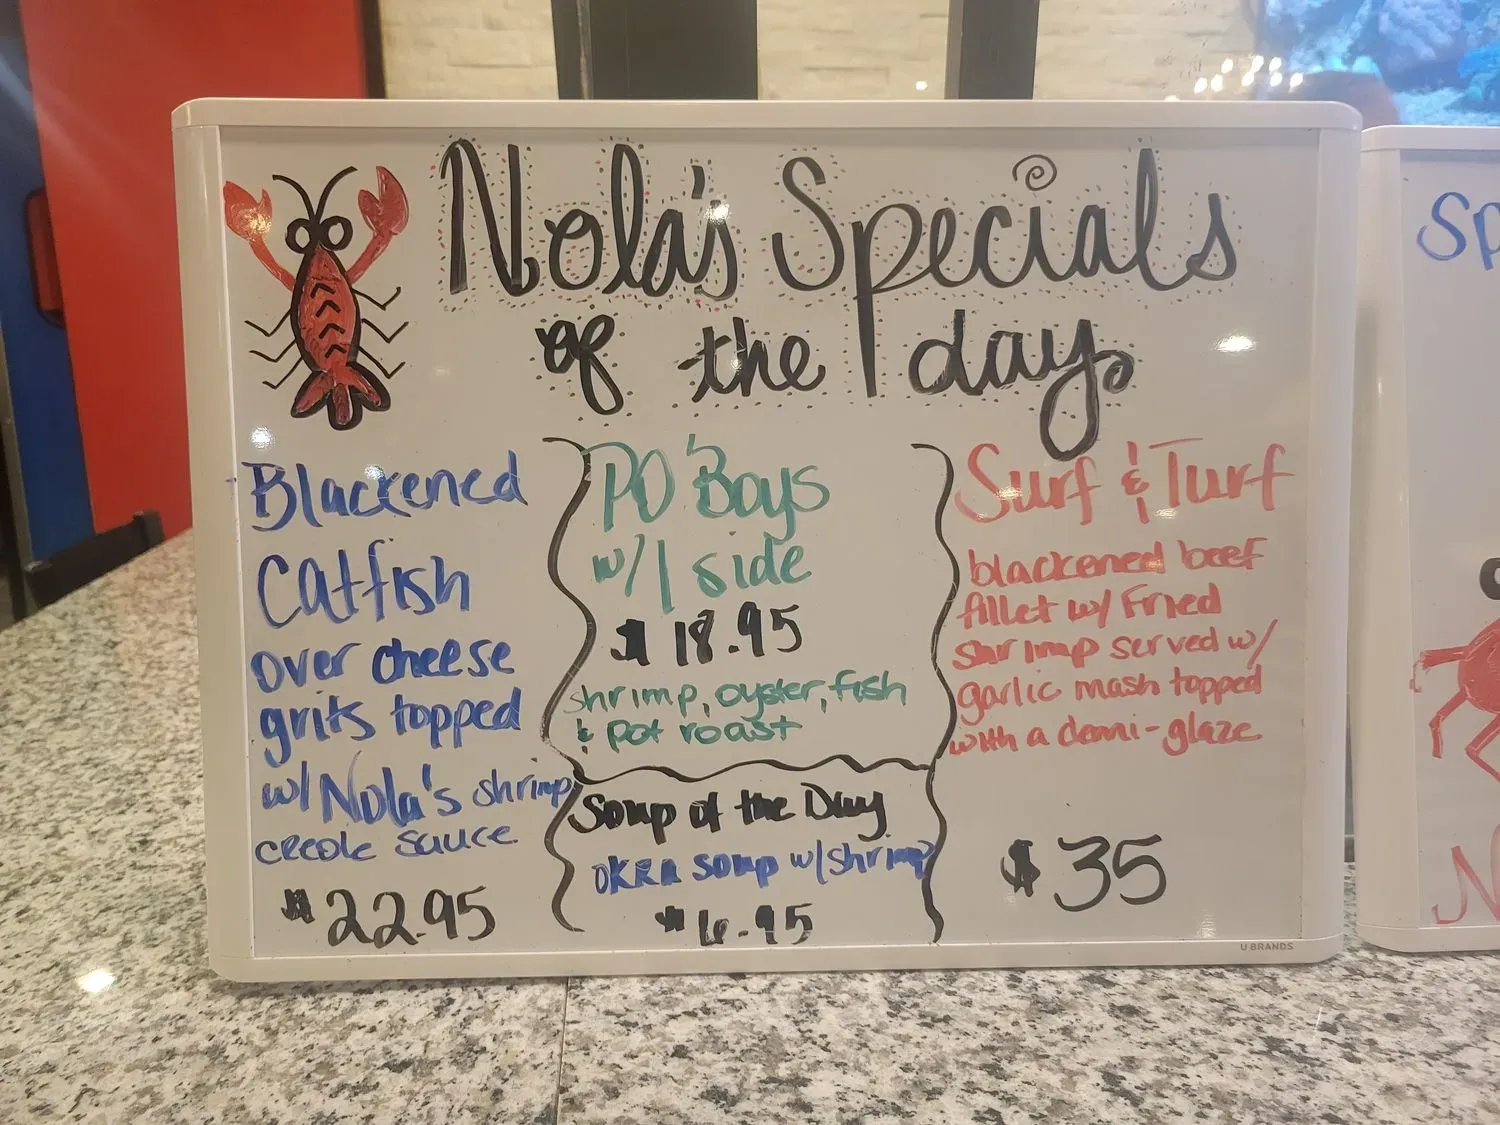 Nola's Specials
of the day
Blackened
Catfish
over cheese
grits topped
w/ Nola's shrimp
creole sauce
$22.95
PO'Boys
w/1 side
$18.95
shrimp, oyster, fish
& pot roast
Soup of the Day
OKRA soup w/shrimp
$6.95
Surf & Turf
blackened beef
fillet w/ Fried
shrimp served w/
garlic mash topped
with a demi-glaze
$35
U BRANDS
Sp
N